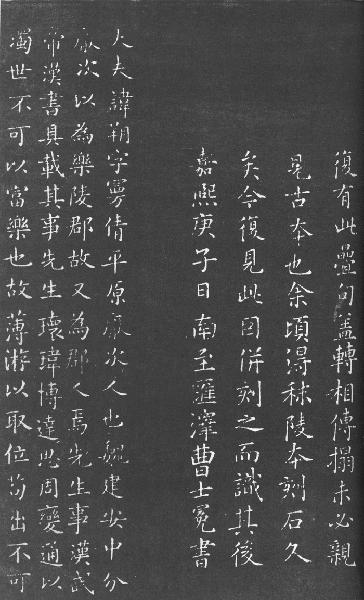 復有此疊句蓋轉相傳搨未必親
見古本也余頃得秣陵本刻石久
矣今復見此因併刻之而識其後
嘉熙庚子日南至羅澤曹士冕書
大夫諱朔字曼倩平原厭次人也魏建安中分
厭次以為樂陵郡故又為郡人焉先生事漢武
帝漢書具載其事先生瓌瑋博達思周變通以
濁世不可以富樂也故薄游以取位苟出不可